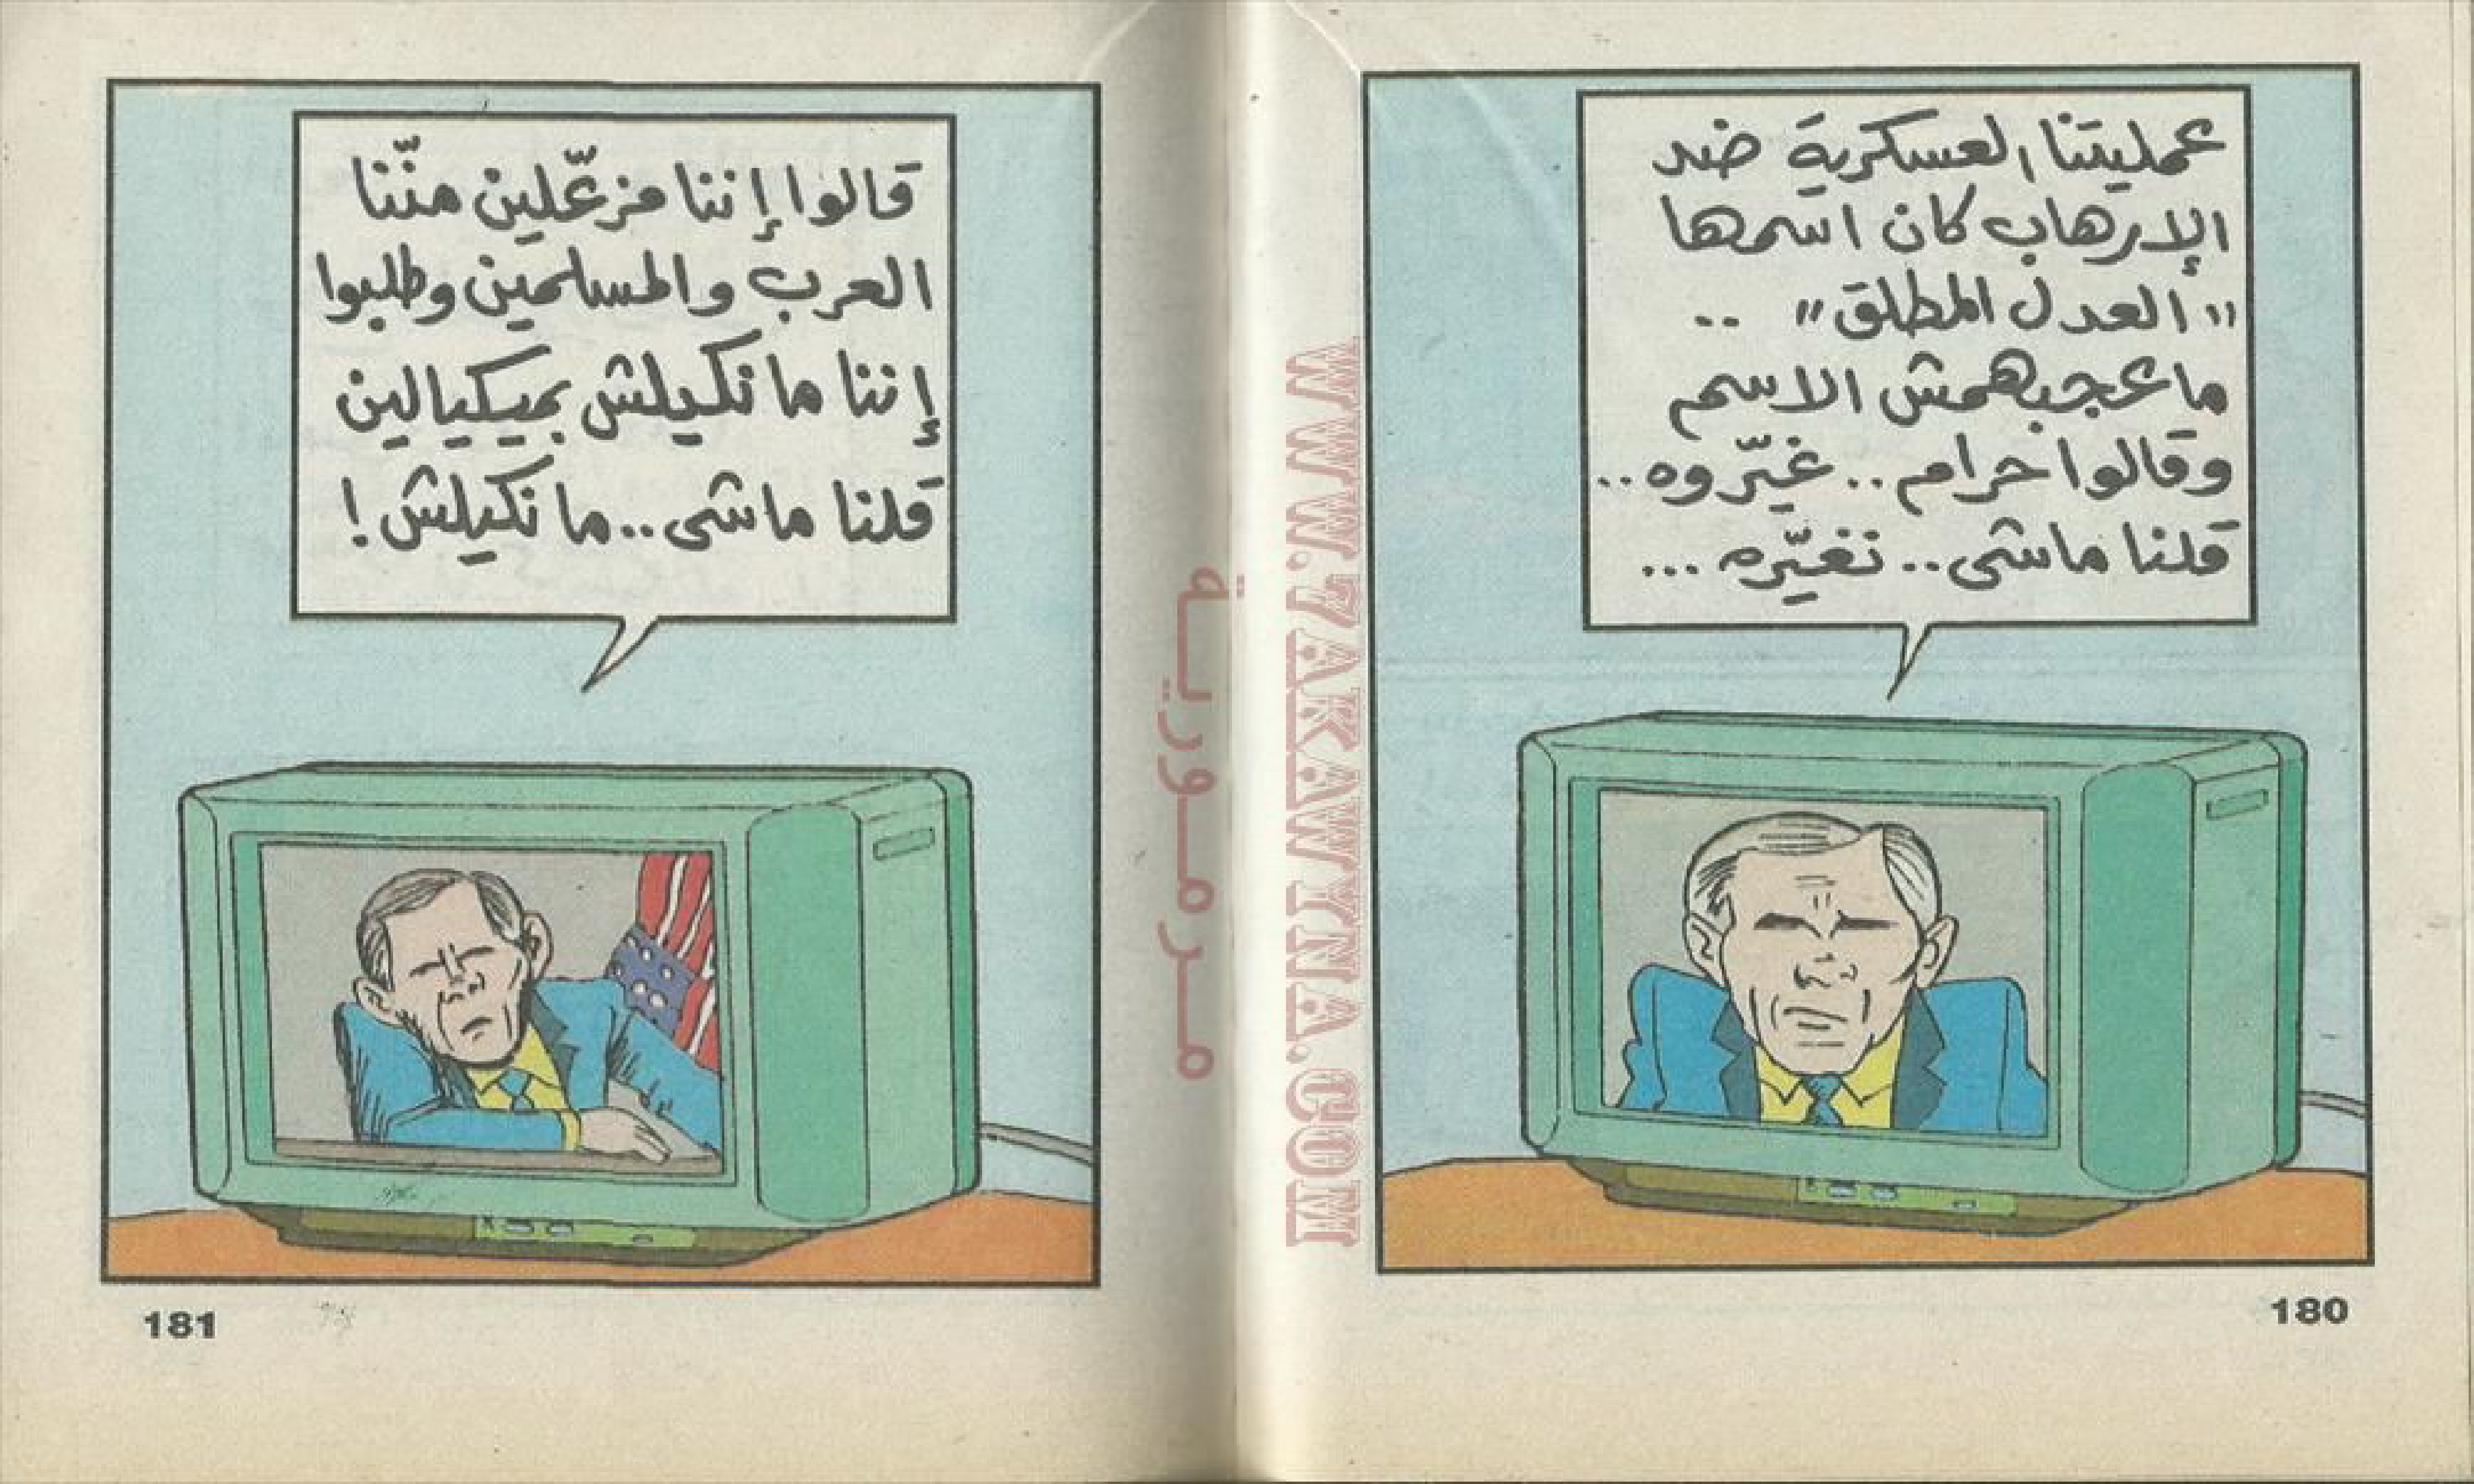 عمليتنا العسكرية ضد
الإرهاب كان اسمها
"العدل المطلق" ..
ما عجبهمش الاسم
وقالوا حرام .. غيّروه ..
قلنا ماشى .. نغيّره ...
180
قالوا إننا مزعّلين منّنا
العرب والمسلمين وطلبوا
إننا ما نكيلش بميكيالين
قلنا ماشى .. ما نكيلش !
181
WWW.7AKAWYNA.COM
مرمورية